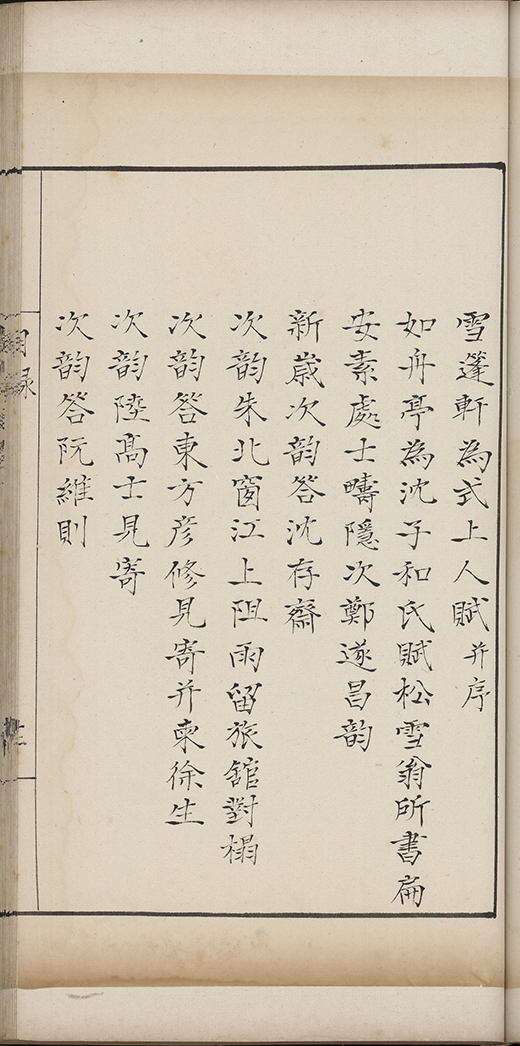 雪蓬軒為式上人賦并序
如舟亭為沈子和氏賦松雪翁所書扁
安素處士疇隱次鄭遂昌韵
新嵗次韵答沈存齋
次韵朱北窗江上阻雨留旅舘對榻
次韵答東方彦修見寄并柬徐生
次韵陸髙士見寄
次韵答阮維則
目録